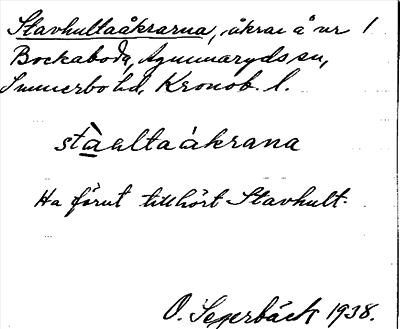 Stavhultaåkrarna, åkrar å nr 1
Bockaboda, Agunnaryds sn,
Sunnerbo hd, Kronob. l.
stàaltaákrana
Ha förut tillhört Stavhult.
O. Segerbäck 1938.